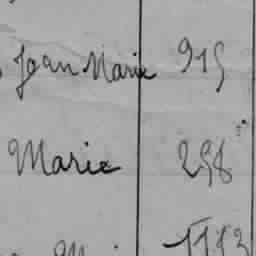 Jean Marie 915
Marie 258